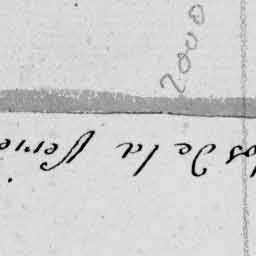 2000
os de la Serie